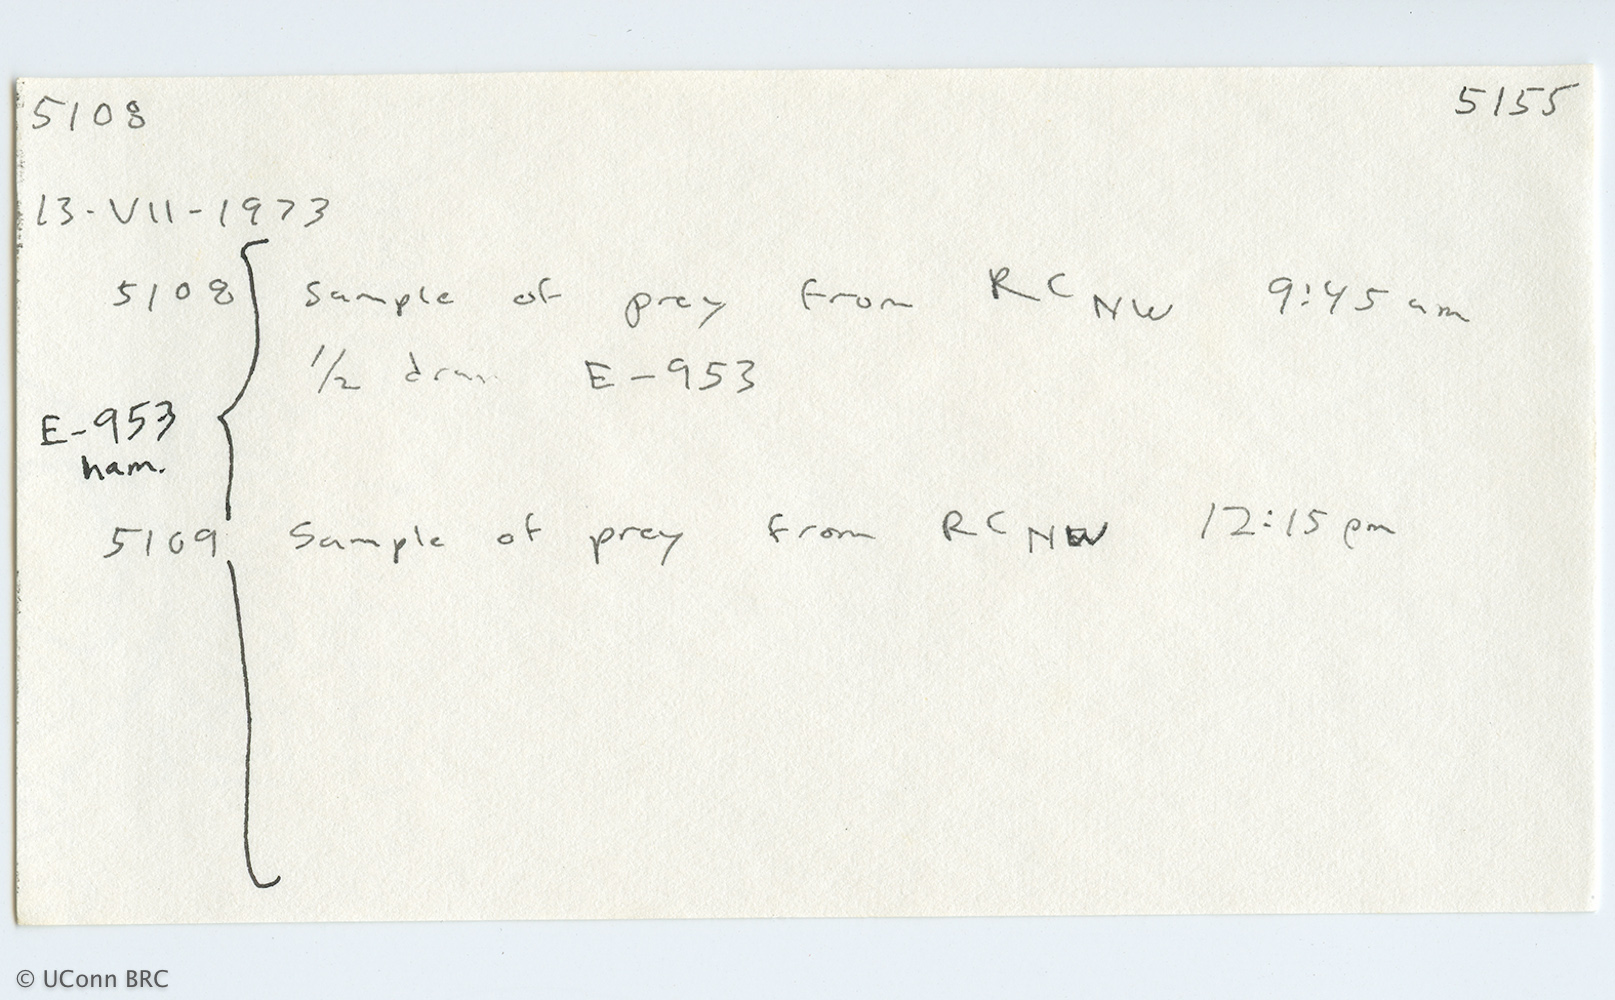 5108 5155
13-VII-1973
5108 Sample of prey from RC NW 9:45 am
1/2 E-953
E-953
ham.
5109 Sample of prey from RC NW 12:15 pm
© UConn BRC